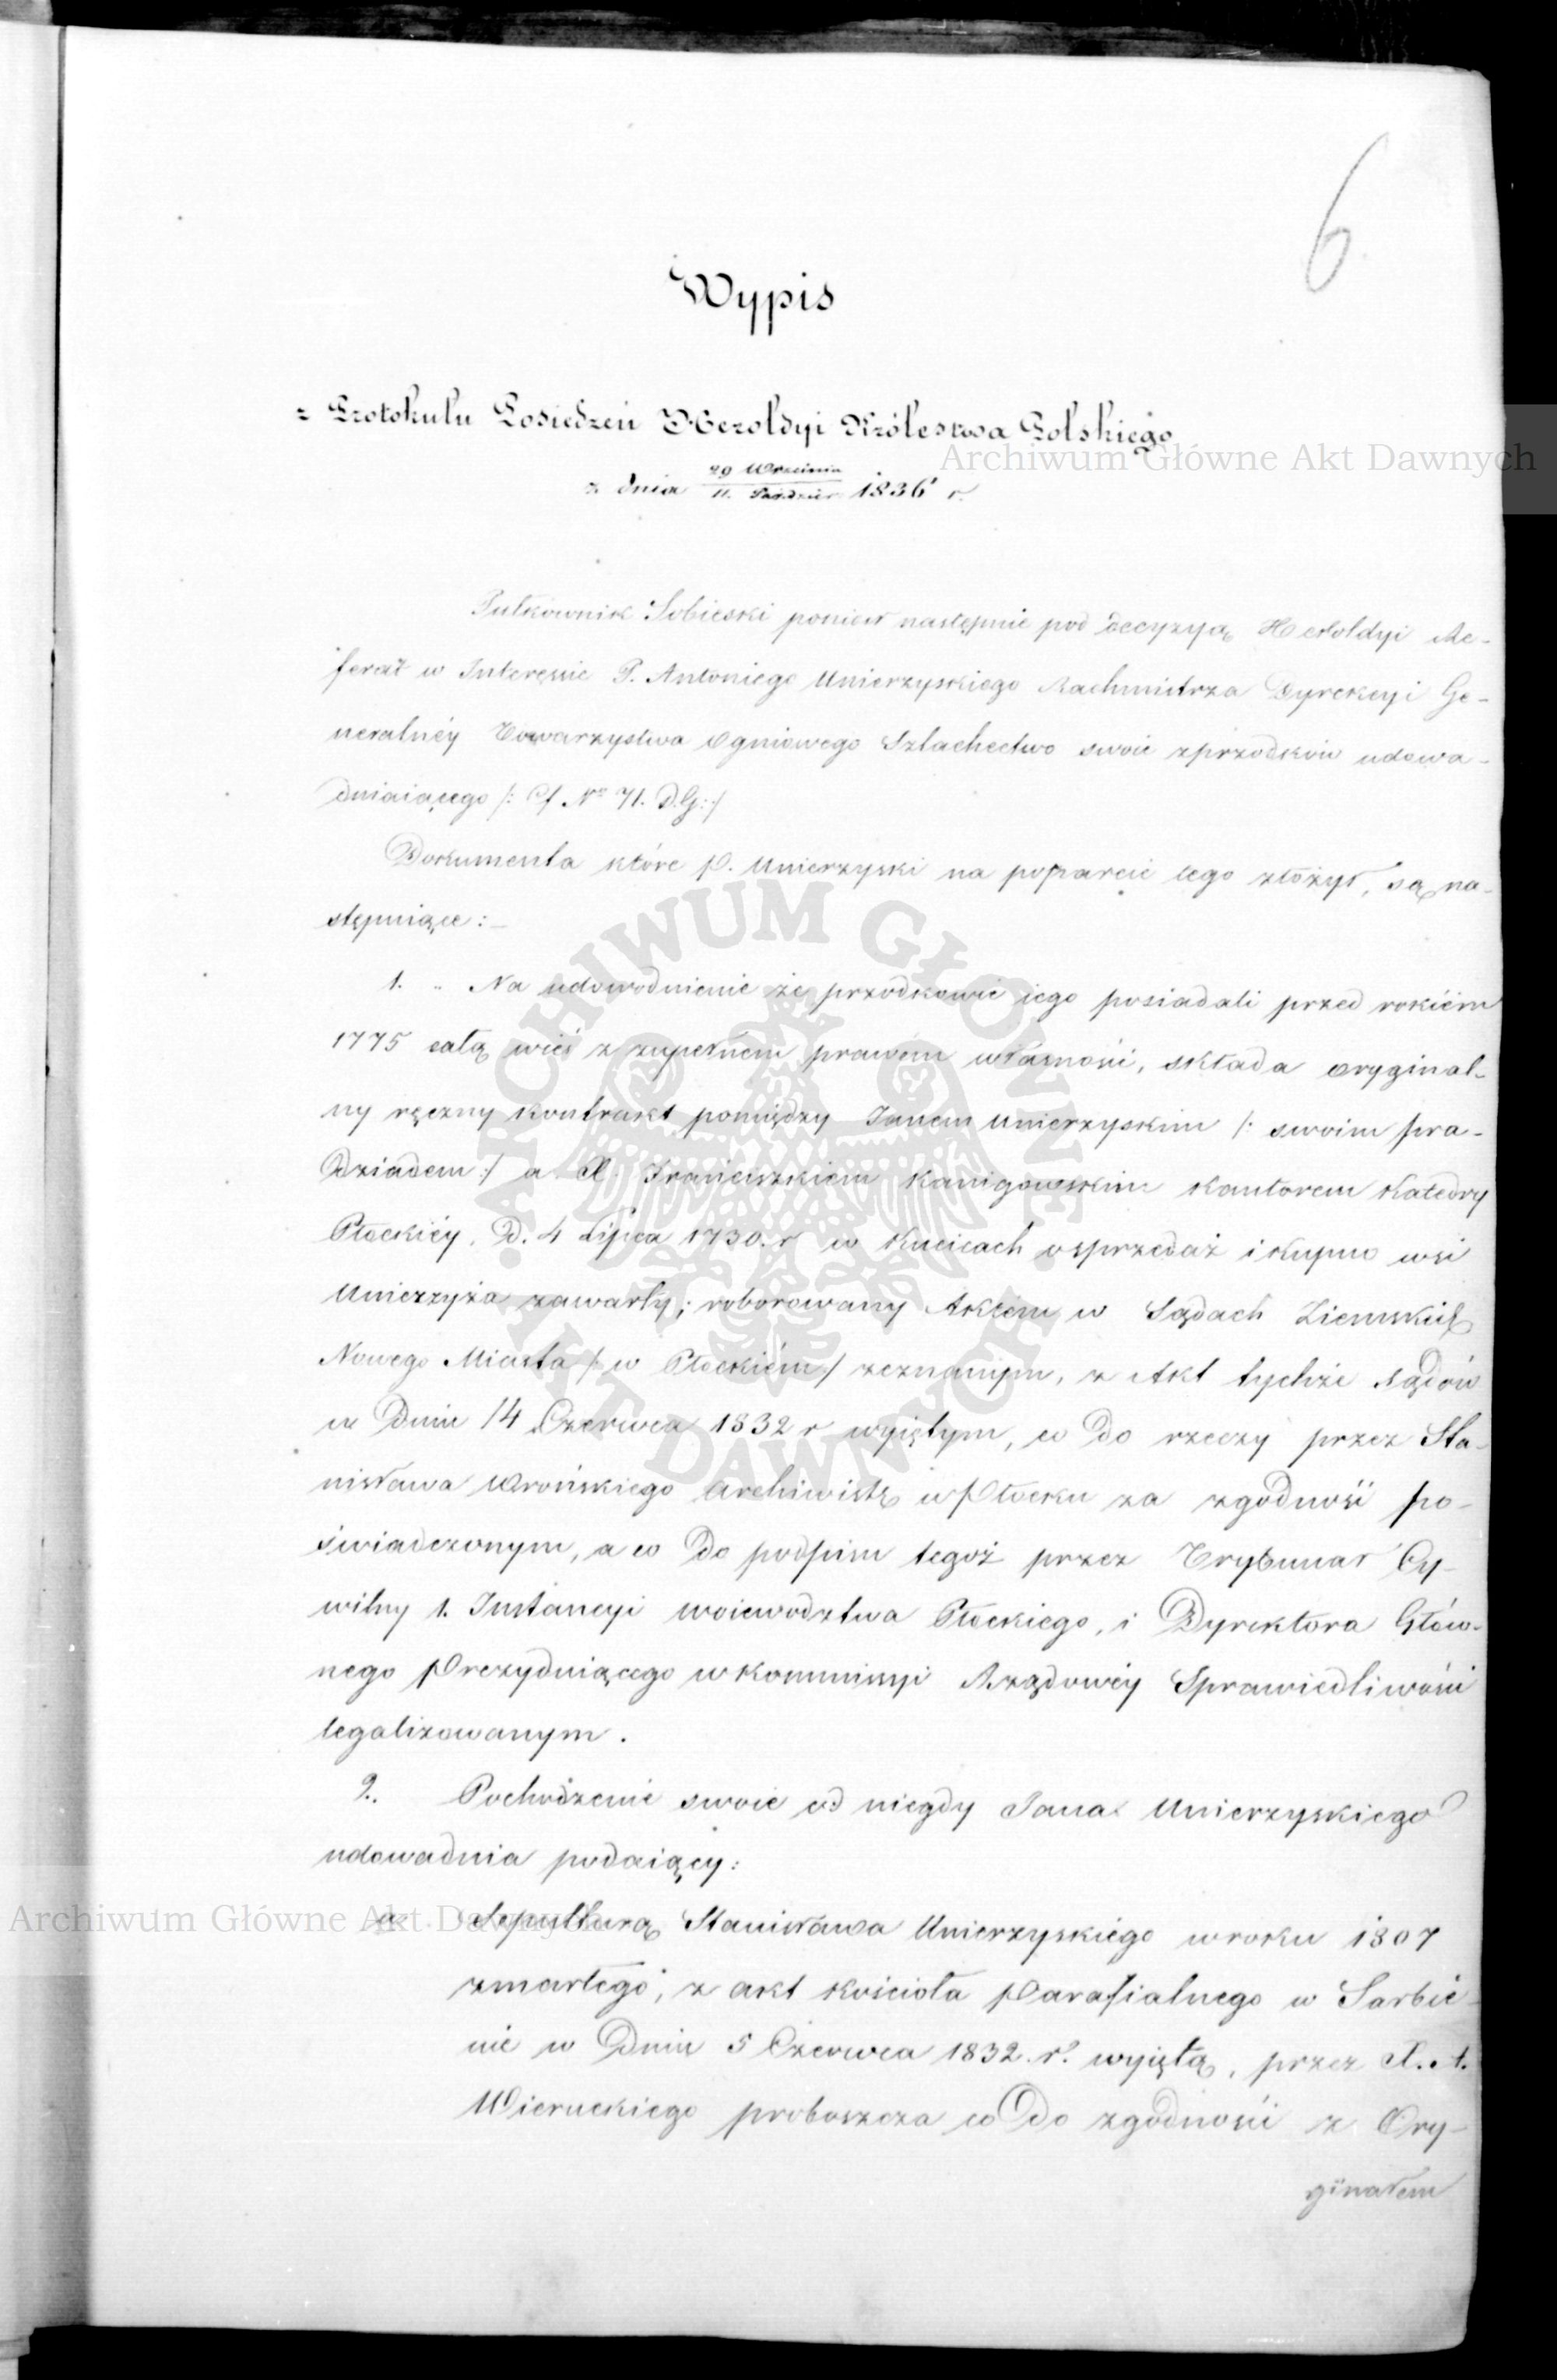 6
Wypis
z Protokułu Posiedzeń Heroldyi Królestwa Polskiego
z dnia 29 Września / 11. Paździer 1836 r.
Archiwum Główne Akt Dawnych
Pułkownik Sobieski poniósł następnie pod decyzyą Heroldyi Re-
ferat w Interessie P. Antoniego Unierzyskiego Rachmistrza Dyrekcyi Ge-
neralnéy Towarzystwa Ogniowego Szlachectwo swoie zprzodków udowa-
dniaiącego /: Cf No 71. D.G: /
Dokumenta które P. Unierzyski na poparcie tego złożył, są na-
stępuiące: _
1. .. Na udowodnienie że przodkowie iego posiadali przed rokiem
1775 całą wieś z zupełnem prawem własności, składa oryginal-
ny ręczny kontrakt pomiędzy Janem Unierzyskim /: swoim pra-
dziadem :/ a X. Franciszkiem Kanigowskim Kantorem Katedry
Płockiéy, D. 4 Lipca 1730. r w Kucicach o sprzedaż i kupno wsi
Unierzyża zawarty; roborowany Aktem w Sądach Ziemskich
Nowego Miasta /: w Płockiém :/ zeznanym, z Akt tychże Sądów
w Dniu 14 Czerwca 1832 r wyiętym, co do rzeczy przez Sta-
nisława Wrońskiego Archiwistę w Płocku za zgodność po-
świadczonym, a co do podpisu tegoż przez Trybunał Cy-
wilny 1. Instancyi Woiewodztwa Płockiego, i Dyrektora Głów-
nego Prezyduiącego w Kommissyi Rządowéy Sprawiedliwości
legalizowanym.
2. Pochodzenie swoie od niegdy Jana Unierzyskiego
udowadnia podaiący:
Archiwum Główne Akt Dawnych
a. Sepulturą Stanisława Unierzyskiego w roku 1807
zmarłego, z akt kościoła Parafialnego w Sarbie-
nie w Dniu 5 Czerwca 1832. r. wyiętą, przez X. A.
Wieruckiego proboszcza co Do zgodności z Ory-
ginałem
ARCHIWUM GŁÓWNE
AKT DAWNYCH